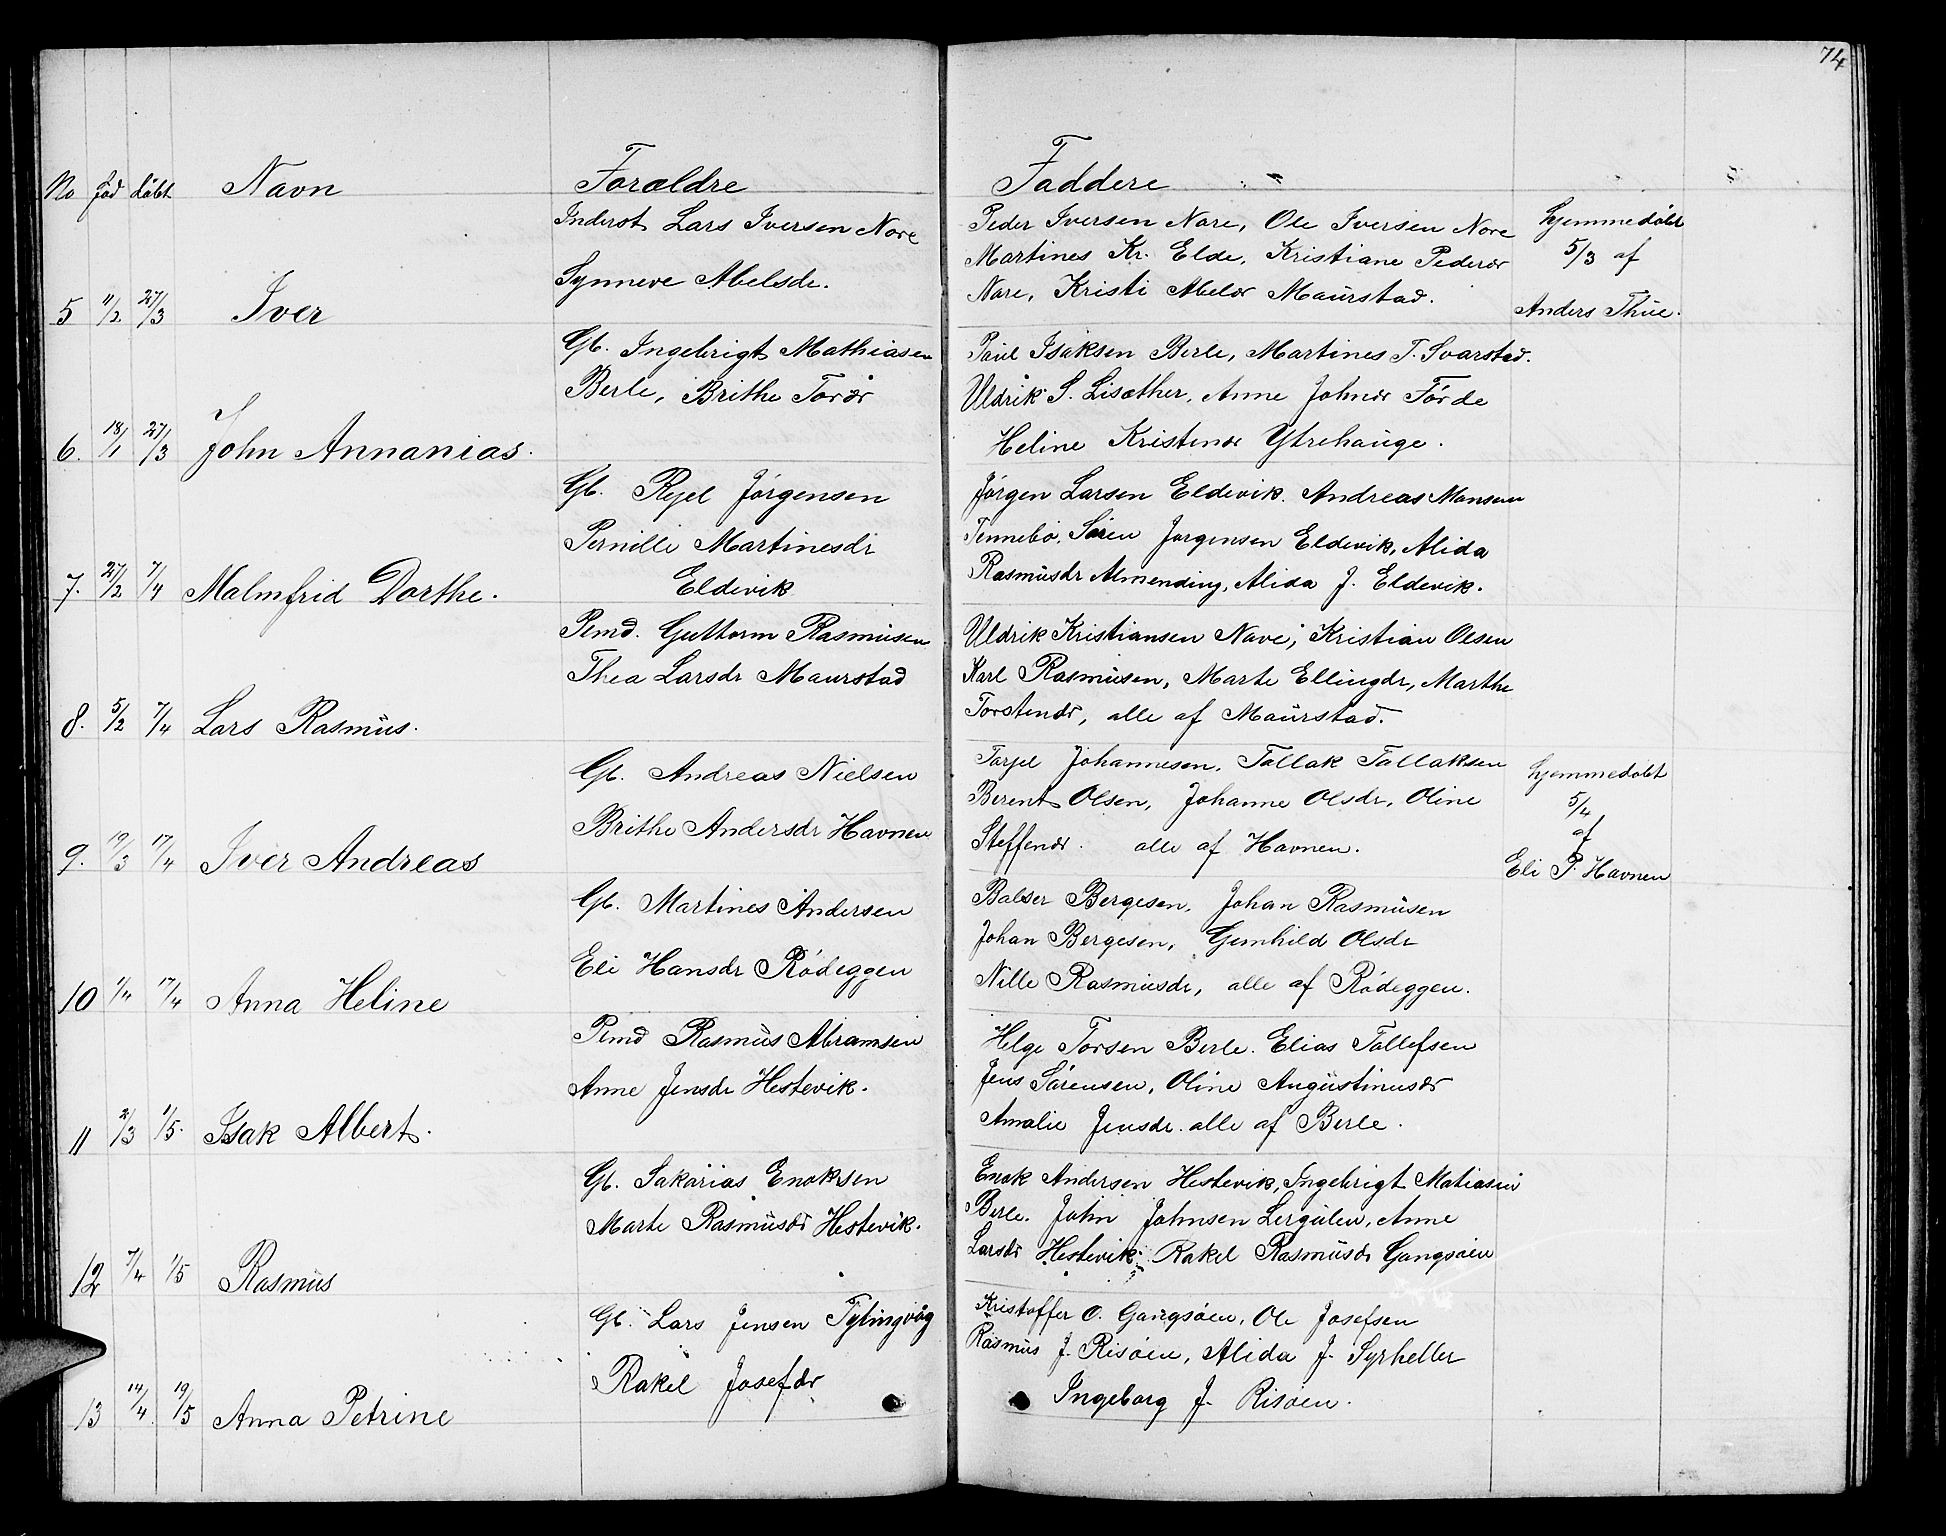 74
No föd döbt Navn Forældre Faddere
Inderst Lars Iversen Nore
Synneve Abelsdr.
5 11/2 27/3 Iver
Peder Iversen Nore, Ole Iversen Nore
Martines Kr. Elde, Kristiane Pedersdr
Nore, Kristi Abelsdr Maurstad.
hjemmedöbt
5/3 af
Anders Thue.
Gb. Ingebrigt Mathiasen
Berle, Brithe Torsdr
6. 18/1 27/3 John Annanias.
Paul Isaksen Berle, Martines T. Svarstad.
Uldrik S. Lisæther, Anne Johnsdr Förde
Heline Kristensdr Ytrehauge.
Gb. Rejel Jörgensen
Pernille Martinesdr
Eldevik
7. 27/2 7/4 Malmfrid Dorthe.
Jörgen Larsen Eldevik. Andreas Monsen
Tennebö, Sören Jorgensen Eldevik, Alida
Rasmusdr Almending, Alida J. Eldevik.
Pemd. Guttorm Rasmusen
Thea Larsdr Maurstad
8. 5/2 7/4 Lars Rasmus.
Uldrik Kristiansen Nave, Kristian Olsen
Karl Rasmusen, Marte Ellingdr, Marthe
Torstensdr, alle af Maurstad.
Gb. Andreas Nielsen
Brithe Andersdr Havnen
9. 19/3 17/4 Iver Andreas
Torjel Johannesen, Tollak Tollaksen
Berent Olsen, Johanne Olsdr, Oline
Steffensdr. alle af Havnen.
hjemmedöbt
5/4
af
Eli P. Havnen
Gb. Martines Andersen
Eli Hansdr Rödeggen
10 1/4 17/4 Anna Heline
Balser Bergesen, Johan Rasmusen
Johan Bergesen, Gunhild Olsdr
Nille Rasmusdr, alle af Rödeggen.
Pemd Rasmus Abramsen
Anne Jensdr Hestevik.
11 2/3 1/5. Isak Albert.
Helge Torsen Berle. Elias Tollefsen
Jens Sörensen, Oline Augustinusdr
Amalie Jensdr. alle af Berle.
Gb. Sakarias Enoksen
Marte Rasmusdr Hestevik.
12 7/4 1/5 Rasmus
Enok Andersen Hestevik, Ingebrigt Matiasen
Berle. John Johnsen Lergulen, Anne
Larsdr Hestevik. Rakel Rasmusdr Gangsöen
Gb. Lars Jensen Tytingvåg
Rakel Josefdr
13 14/4 19/5 Anna Petrine
Kristoffer O. Gangsöen, Ole Josefsen
Rasmus J. Risöen, Alida J. Syrheller
Ingeborg J. Risöen.